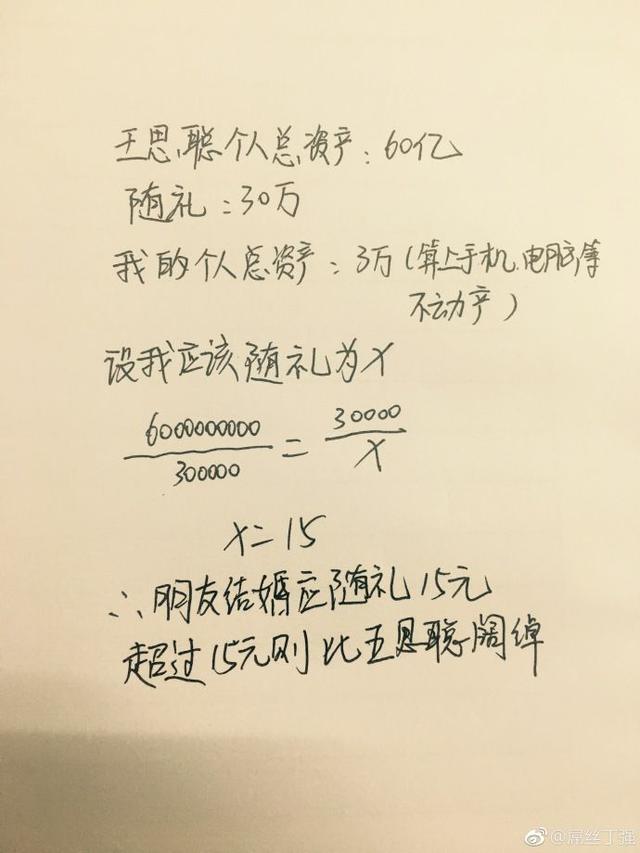 王思聪个人总资产：60亿
随礼：30万
我的个人总资产：3万（算上手机、电脑等
不动产）
设我应该随礼为X
6000000000/300000 = 30000/X
X=15
∴朋友结婚应随礼15元
超过15元则比王思聪阔绰
@屌丝丁强